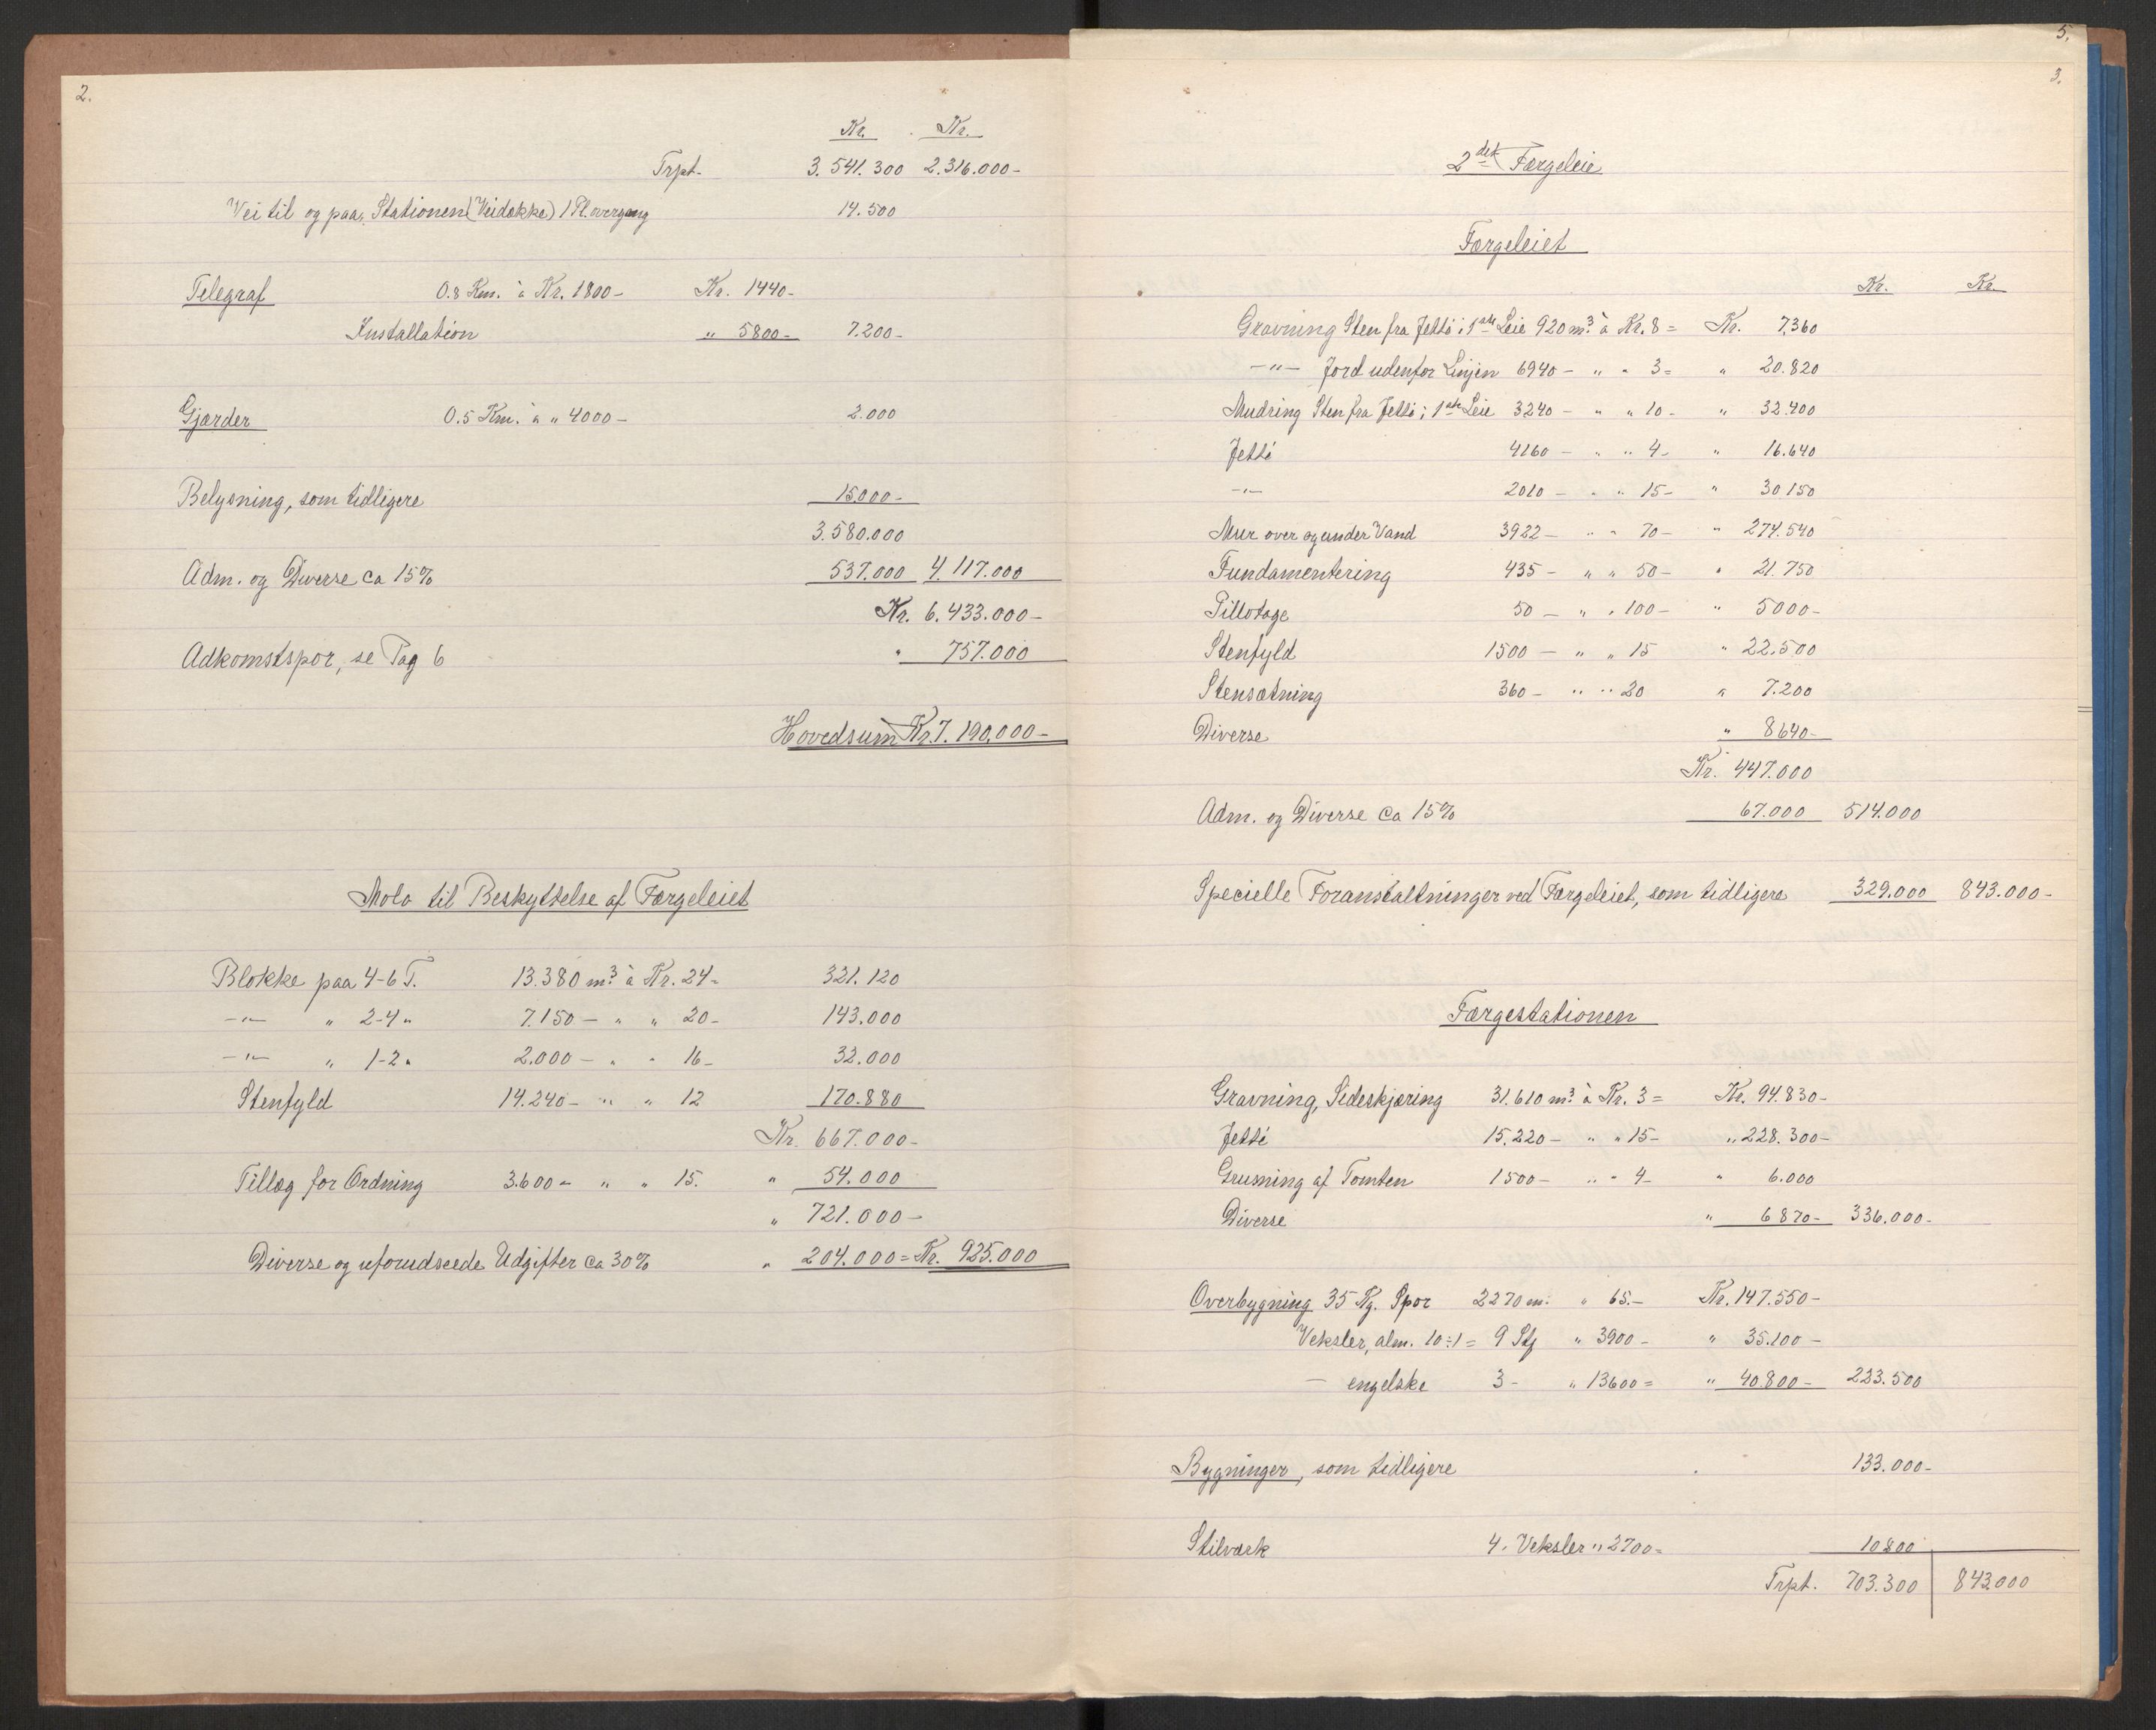 2.
Kr. Kr.
Trpt. 3.541.300 2.316.000-
Vei til og paa Stationen (Veidække) 1 Pl. overgang 14.500
Telegraf 0.8 Km. à Kr. 1800- Kr. 1440-
Installation " 5800- 7.200-
Gjærder 0.5 Km. à " 4000- 2.000
Belysning, som tidligere 15.000-
3.580.000
Adm. og Diverse ca 15% 537.000 4.117.000
Kr. 6.433.000-
Adkomstspor, se Pag 6 " 757.000
Hovedsum Kr. 7.190.000-
Molo til Beskyttelse af Færgeleiet
Blokke paa 4-6 T. 13.380 m.³ à Kr. 24- 321.120
-"- " 2-4 " 7.150 - " " 20- 143.000
-"- " 1-2 " 2.000 - " " 16- 32.000
Stenfyld 14.240 - " " 12 170.880
Kr. 667.000-
Tillæg for Ordning 3.600 - " " 15. " 54.000
" 721.000-
Diverse og uforudseede Udgifter ca 30% " 204.000 = Kr. 925.000
5.
3.
2det Færgeleie
Færgeleiet
Kr. Kr.
Gravning Sten fra Jetté i 1ste Leie 920 m.³ à Kr. 8 = Kr. 7.360
-"- Jord udenfor Linjen 6940 - " " 3 = " 20.820
Mudring Sten fra Jetté i 1ste Leie 3240 - " " 10 - " 32.400
Jetté 4160 - " " 4 - " 16.640
-"- 2010 - " " 15 - " 30150
Mur over og under Vand 3922 - " " 70 - " 274.540
Fundamentering 435 - " " 50 - " 21.750
Pillotage 50 - " " 100 - " 5000-
Stenfyld 1500 - " " 15 " 22.500
Stensætning 360 - " " 20 " 7.200
Diverse " 8640-
Kr. 447.000
Adm. og Diverse ca 15% 67.000 514.000
Specielle Foranstaltninger ved Færgeleiet, som tidligere 329.000 843.000-
Færgestationen
Gravning, Sideskjæring 31.610 m.³ à Kr. 3 = Kr. 94.830-
Jetté 15.220 - " " 15 - " 228.300-
Grusning af Tomten 1500 - " " 4 - " 6.000
Diverse " 6870- 336.000-
Overbygning 35 Kg. Spor 2270 m. " 65.- Kr. 147.550-
Veksler, alm. 10÷1 = 9 Stj " 3900- " 35.100-
- engelske 3 - " 13600 = " 40.800- 223.500
Bygninger, som tidligere 133.000-
Stilværk 4. Veksler " 2700 = 10800
Trpt. 703.300 843.000